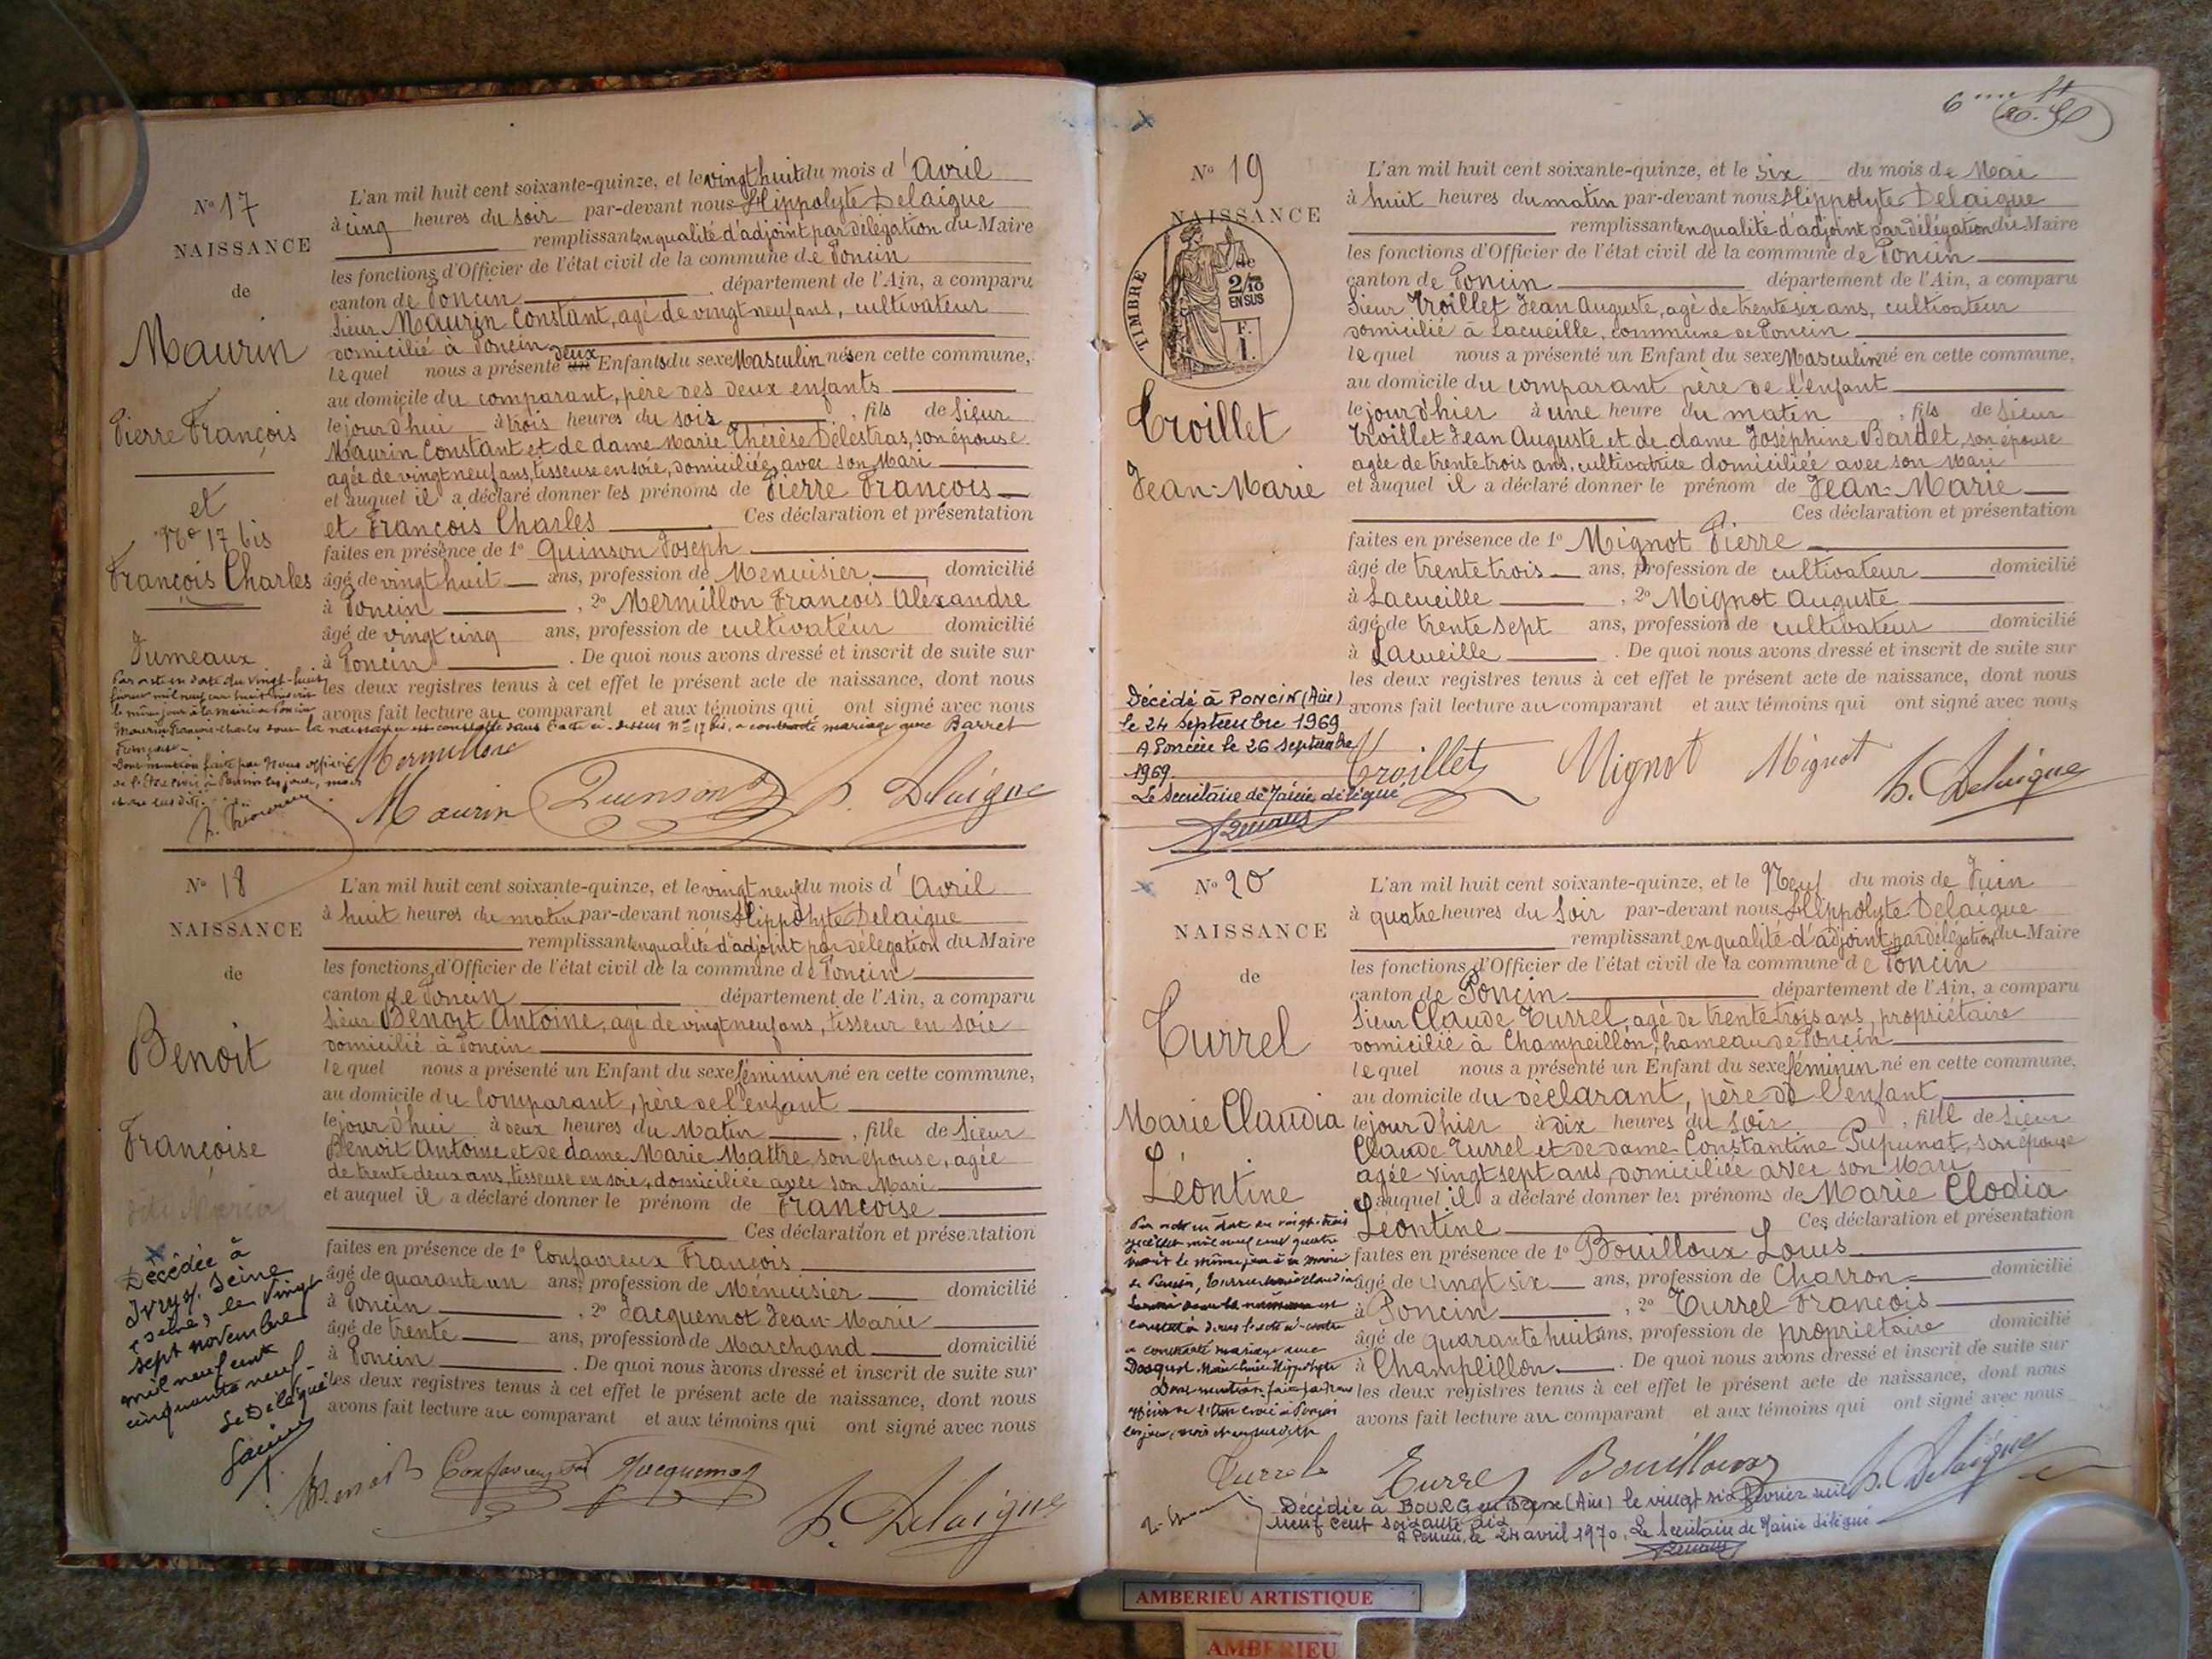 Nº 17
NAISSANCE
de
Maurin
Pierre François
et
Nº 17 bis
François Charles
Jumeaux
Par acte en date du vingt-huit
mil neuf cent huit inscrit
le même jour à la mairie de Poncin
Maurin François-Charles dont la naissance est constatée dans l'acte ci-dessus nº 17 bis, a contracté mariage avec Barret
Françoise
Dont mention faite par Nous officier
de l'état civil à Poncin les jour, mois
et an susdits.
L'an mil huit cent soixante-quinze, et le vingt huit du mois d'Avril
à cinq heures du soir par-devant nous Hippolyte Delaigue
remplissant en qualité d'adjoint par délégation du Maire
les fonctions d'Officier de l'état civil de la commune de Poncin
canton de Poncin département de l'Ain, a comparu
Sieur Maurin Constant, agé de vingt neuf ans, cultivateur
domicilié à Poncin
lequel nous a présenté deux Enfants du sexe Masculin nés en cette commune,
au domicile du comparant, père des deux enfants
le jourd'hui à trois heures du soir, fils de Sieur
Maurin Constant et de dame Marie Thérèse Délestras, son épouse
agée de vingt neuf ans, tisseuse en soie, domiciliée avec son Mari
et auquel il a déclaré donner les prénoms de Pierre François
et François Charles Ces déclaration et présentation
faites en présence de 1º Quinson Joseph
âgé de vingt huit ans, profession de Menuisier, domicilié
à Poncin, 2º Mermillon François Alexandre
âgé de vingt cinq ans, profession de cultivateur domicilié
à Poncin. De quoi nous avons dressé et inscrit de suite sur
les deux registres tenus à cet effet le présent acte de naissance, dont nous
avons fait lecture au comparant et aux témoins qui ont signé avec nous
Mermillon
Maurin Quinson h. Delaigue
Nº 18
NAISSANCE
de
Benoit
Françoise
Décédée à
Ivry s/ Seine
(Seine) le vingt
sept novembre
mil neuf cent
cinquante neuf
Le Délégué
L'an mil huit cent soixante-quinze, et le vingt neuf du mois d'Avril
à huit heures du matin par-devant nous Hippolyte Delaigue
remplissant en qualité d'adjoint par délégation du Maire
les fonctions d'Officier de l'état civil de la commune de Poncin
canton de Poncin département de l'Ain, a comparu
Sieur Benoit Antoine, agé de vingt neuf ans, tisseur en soie
domicilié à Poncin
lequel nous a présenté un Enfant du sexe féminin né en cette commune,
au domicile du Comparant, père de l'enfant
le jourd'hui à deux heures du Matin, fille de Sieur
Benoit Antoine et de dame Marie Mattre son épouse, agée
de trente deux ans, tisseuse en soie, domiciliée avec son Mari
et auquel il a déclaré donner le prénom de Françoise
Ces déclaration et présentation
faites en présence de 1º Confavreux François
âgé de quarante un ans, profession de Ménuisier domicilié
à Poncin, 2º Jacquemot Jean-Marie
âgé de trente ans, profession de Marchand domicilié
à Poncin. De quoi nous avons dressé et inscrit de suite sur
les deux registres tenus à cet effet le présent acte de naissance, dont nous
avons fait lecture au comparant et aux témoins qui ont signé avec nous
Benoit Confavreux Jacquemot
h. Delaigue
Nº 19
NAISSANCE
TIMBRE
2/10
EN SUS
F.
I.
Troillet
Jean-Marie
Décédé à PONCIN (Ain)
le 24 Septembre 1969
A Poncin le 26 septembre
1969.
Le Secrétaire de Mairie délégué
L'an mil huit cent soixante-quinze, et le six du mois de Mai
à huit heures du matin par-devant nous Hippolyte Delaigue
remplissant en qualité d'adjoint par délégation du Maire
les fonctions d'Officier de l'état civil de la commune de Poncin
canton de Poncin département de l'Ain, a comparu
Sieur Troillet Jean Auguste, agé de trente six ans, cultivateur
domicilié à Lacueille, commune de Poncin
lequel nous a présenté un Enfant du sexe Masculin né en cette commune,
au domicile du comparant père de l'enfant
le jour d'hier à une heure du matin, fils de Sieur
Troillet Jean Auguste et de dame Joséphine Bardet, son épouse
agée de trente trois ans, cultivatrice domiciliée avec son Mari
et auquel il a déclaré donner le prénom de Jean-Marie
Ces déclaration et présentation
faites en présence de 1º Mignot Pierre
âgé de trente trois ans, profession de cultivateur domicilié
à Lacueille, 2º Mignot Auguste
âgé de trente sept ans, profession de cultivateur domicilié
à Lacueille. De quoi nous avons dressé et inscrit de suite sur
les deux registres tenus à cet effet le présent acte de naissance, dont nous
avons fait lecture au comparant et aux témoins qui ont signé avec nous
Troillet Mignot Mignot h. Delaigue
Nº 20
NAISSANCE
de
Turrel
Marie Claudia
Léontine
Par acte en date du vingt-trois
juillet mil neuf cent quatre
inscrit le même jour à la mairie
de Poncin, Turrel Marie Claudia
Léontine dont la naissance est
constatée dans l'acte ci-contre
a contracté mariage avec
Hippolyte
Dont mention faite par nous
officier de l'état civil à Poncin
les jour, mois et an susdits
L'an mil huit cent soixante-quinze, et le Neuf du mois de Juin
à quatre heures du Soir par-devant nous Hippolyte Delaigue
remplissant en qualité d'adjoint par délégation du Maire
les fonctions d'Officier de l'état civil de la commune de Poncin
canton de Poncin département de l'Ain, a comparu
Sieur Claude Turrel, agé de trente trois ans, propriétaire
domicilié à Champeillon, hameau de Poncin
lequel nous a présenté un Enfant du sexe féminin né en cette commune,
au domicile du déclarant, père de l'enfant
le jour d'hier à dix heures du soir, fille de Sieur
Claude Turrel et de dame Constantine Pupunat, son épouse
agée vingt sept ans, domiciliée avec son Mari
et auquel il a déclaré donner les prénoms de Marie Clodia
Léontine Ces déclaration et présentation
faites en présence de 1º Bouilloux Louis
âgé de vingt six ans, profession de Charron domicilié
à Poncin, 2º Turrel François
âgé de quarante huit ans, profession de propriétaire domicilié
à Champeillon. De quoi nous avons dressé et inscrit de suite sur
les deux registres tenus à cet effet le présent acte de naissance, dont nous
avons fait lecture au comparant et aux témoins qui ont signé avec nous
Turrel Turrel Bouilloux h. Delaigue
Décédée à BOURG en Bresse (Ain) le vingt six février mil
neuf cent soixante dix
A Poncin, le 24 avril 1970. Le Secrétaire de Mairie délégué
AMBERIEU ARTISTIQUE
AMBERIEU